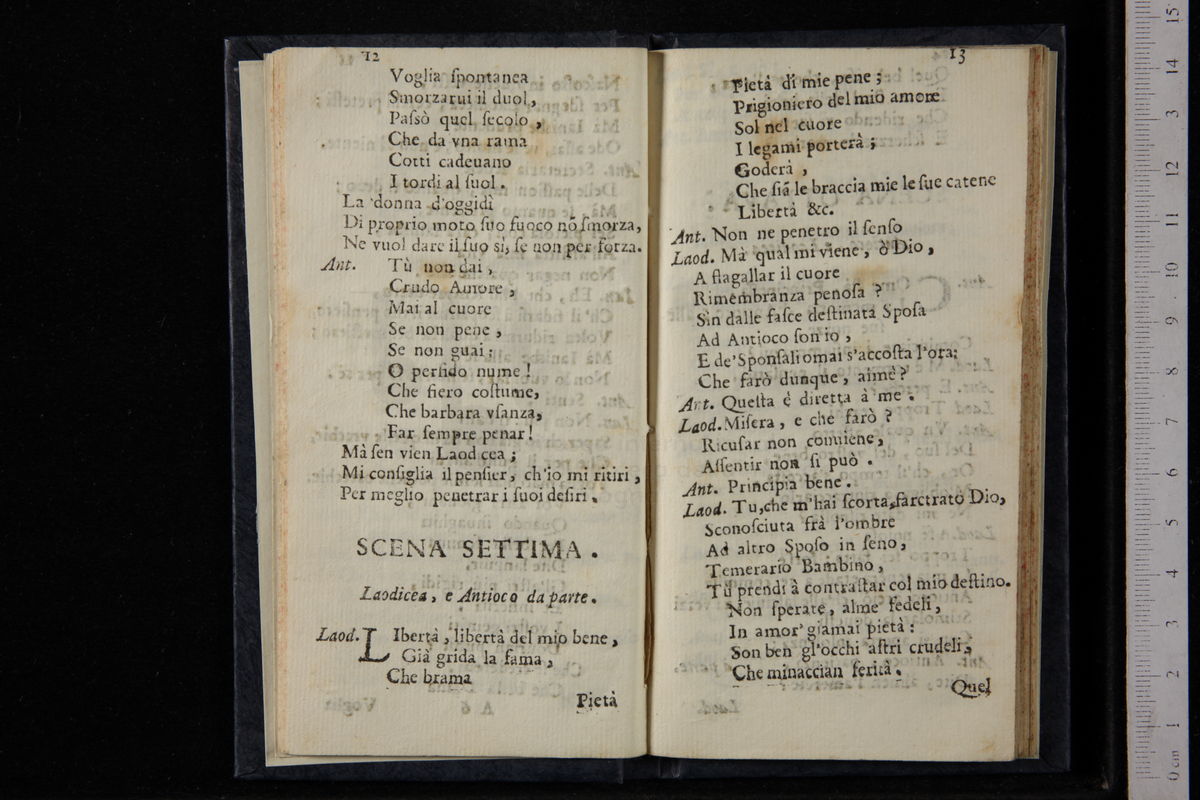 12
Voglia ſpontanea
Smorzarui il duol,
Paſsò quel ſecolo,
Che da vna rama
Cotti cadeuano
I tordi al ſuol.
La donna d'oggidì
Di proprio moto ſuo fuoco nõ ſmorza,
Ne vuol dare il ſuo si, ſe non per forza.
Ant. Tù non dai,
Crudo Amore,
Mai al cuore
Se non pene,
Se non guai;
O perfido nume!
Che fiero coſtume,
Che barbara vſanza,
Far ſempre penar!
Mà ſen vien Laodicea;
Mi conſiglia il penſier, ch'io mi ritiri,
Per meglio penetrar i ſuoi deſiri.
SCENA SETTIMA.
Laodicea, e Antioco da parte.
Laod. LIbertà, libertà del mio bene,
Già grida la fama,
Che brama
Pietà
13
Pietà di mie pene;
Prigioniero del mio amore
Sol nel cuore
I legami porterà;
Goderà,
Che ſiã le braccia mie le ſue catene
Libertà &c.
Ant. Non ne penetro il ſenſo
Laod. Mà qual mi viene, ò Dio,
A flagallar il cuore
Rimembranza penoſa?
Sin dalle faſce deſtinata Spoſa
Ad Antioco ſon io,
E de'Sponſali omai s'accoſta l'ora:
Che farò dunque, aimè?
Ant. Queſta è diretta à me.
Laod. Miſera, e che farò?
Ricuſar non conuiene,
Aſſentir non ſi può.
Ant. Principia bene.
Laod. Tu, che m'hai ſcorta, faretrato Dio,
Sconoſciuta frà l'ombre
Ad altro Spoſo in ſeno,
Temerario Bambino,
Tù prendi à contraſtar col mio deſtino.
Non ſperate, alme fedeli,
In amor giamai pietà:
Son ben gl'occhi aſtri crudeli,
Che minaccian ferità.
Quel
0 cm 1 2 3 4 5 6 7 8 9 10 11 12 13 14 15